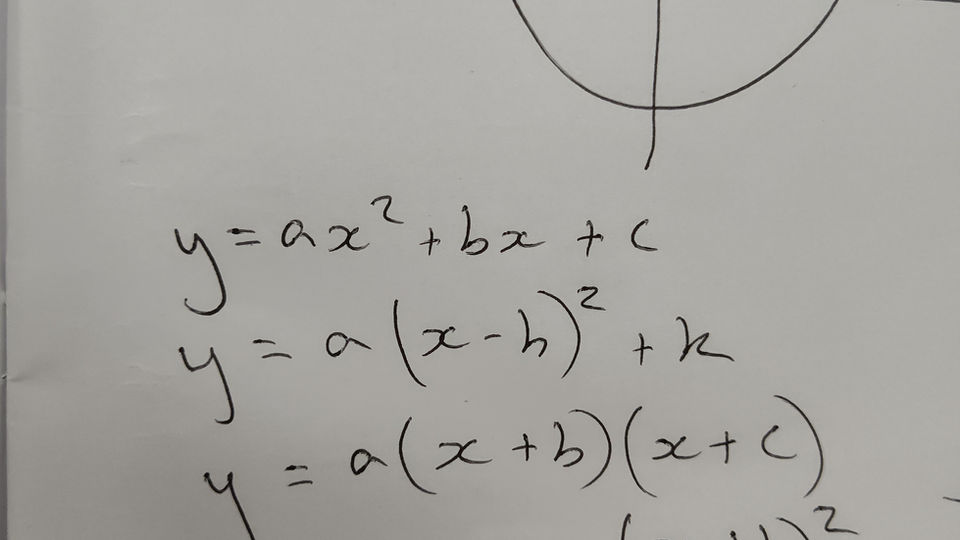 y = ax² + bx + c
y = a(x - h)² + k
y = a(x + b)(x + c)